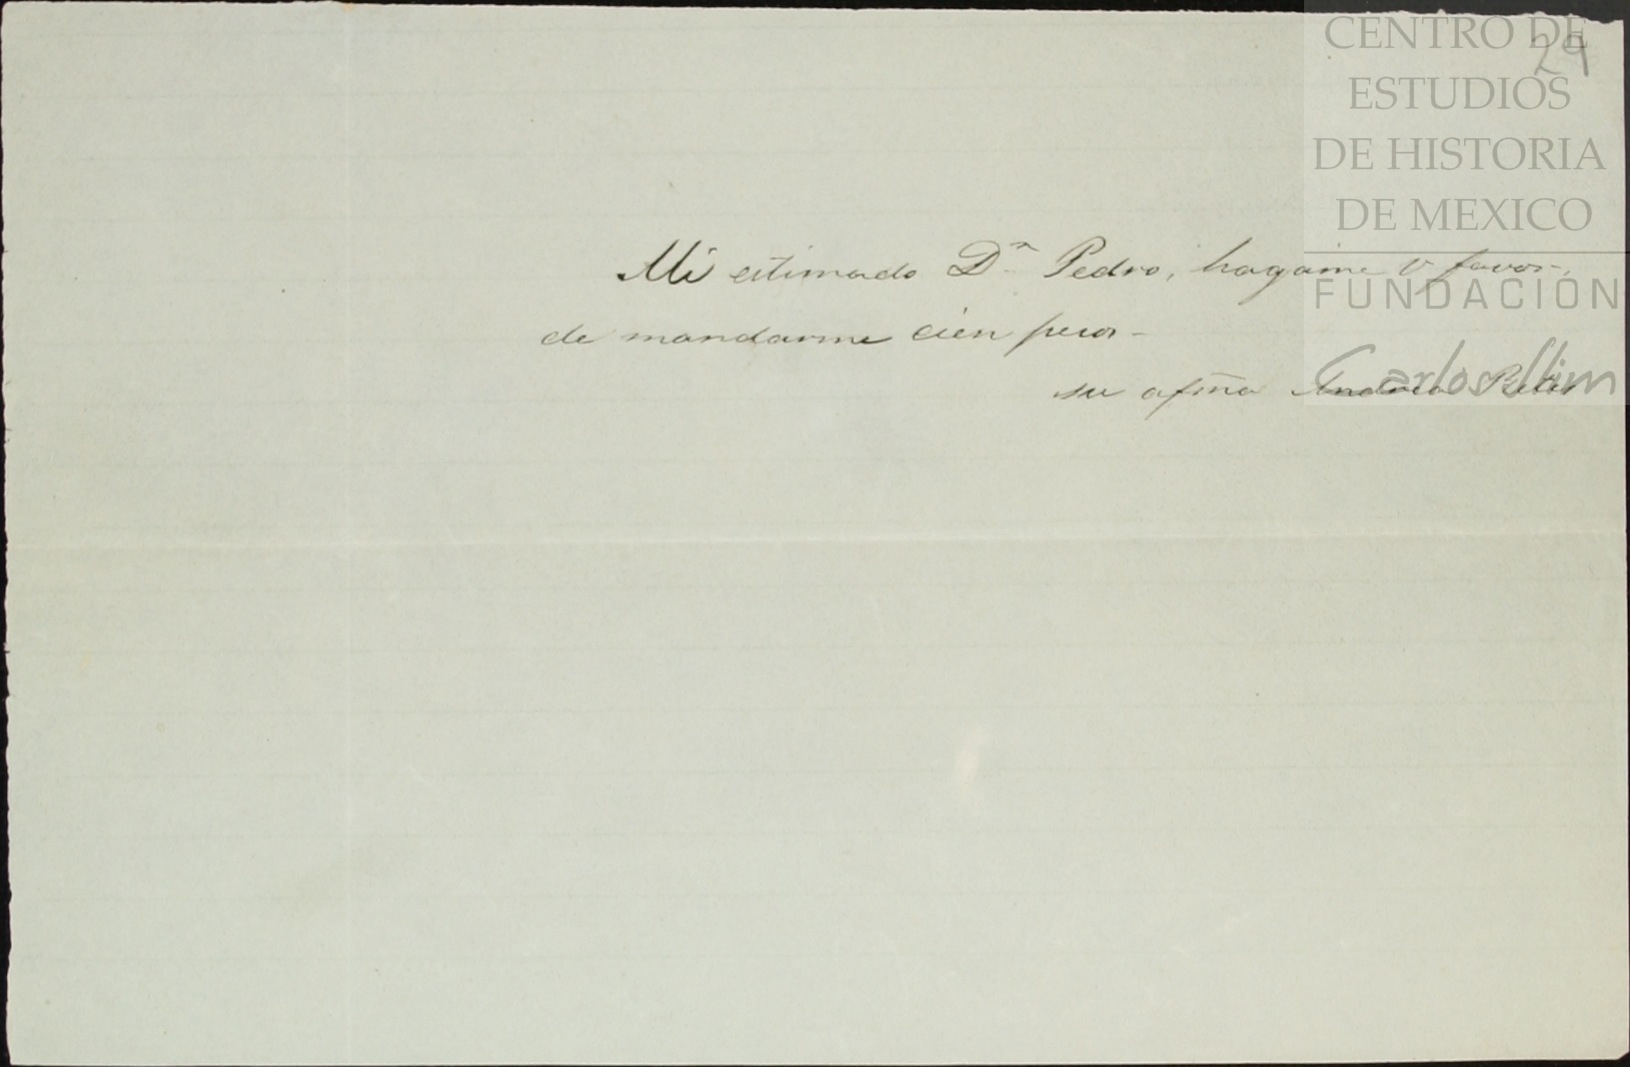 29
CENTRO DE
ESTUDIOS
DE HISTORIA
DE MEXICO
FUNDACIÓN
Carlos Slim
Mi estimado Dn Pedro, hagame V favor
de mandarme cien pesos -
su afma Andrea